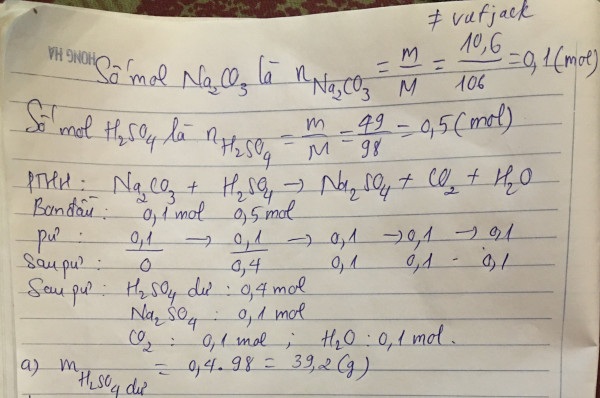 ≠ vufjack
HONG HA
Số mol Na₂CO₃ là n_Na₂CO₃ = m/M = 10,6/106 = 0,1 (mol)
Số mol H₂SO₄ là n_H₂SO₄ = m/M = 49/98 = 0,5 (mol)
PTHH : Na₂CO₃ + H₂SO₄ → Na₂SO₄ + CO₂ + H₂O
Ban đầu : 0,1 mol 0,5 mol
pư : 0,1 → 0,1 → 0,1 → 0,1 → 0,1
Sau pư : 0 0,4 0,1 0,1 - 0,1
Sau pư : H₂SO₄ dư : 0,4 mol
Na₂SO₄ : 0,1 mol
CO₂ : 0,1 mol ; H₂O : 0,1 mol.
a) m_H₂SO₄ dư = 0,4 . 98 = 39,2 (g)